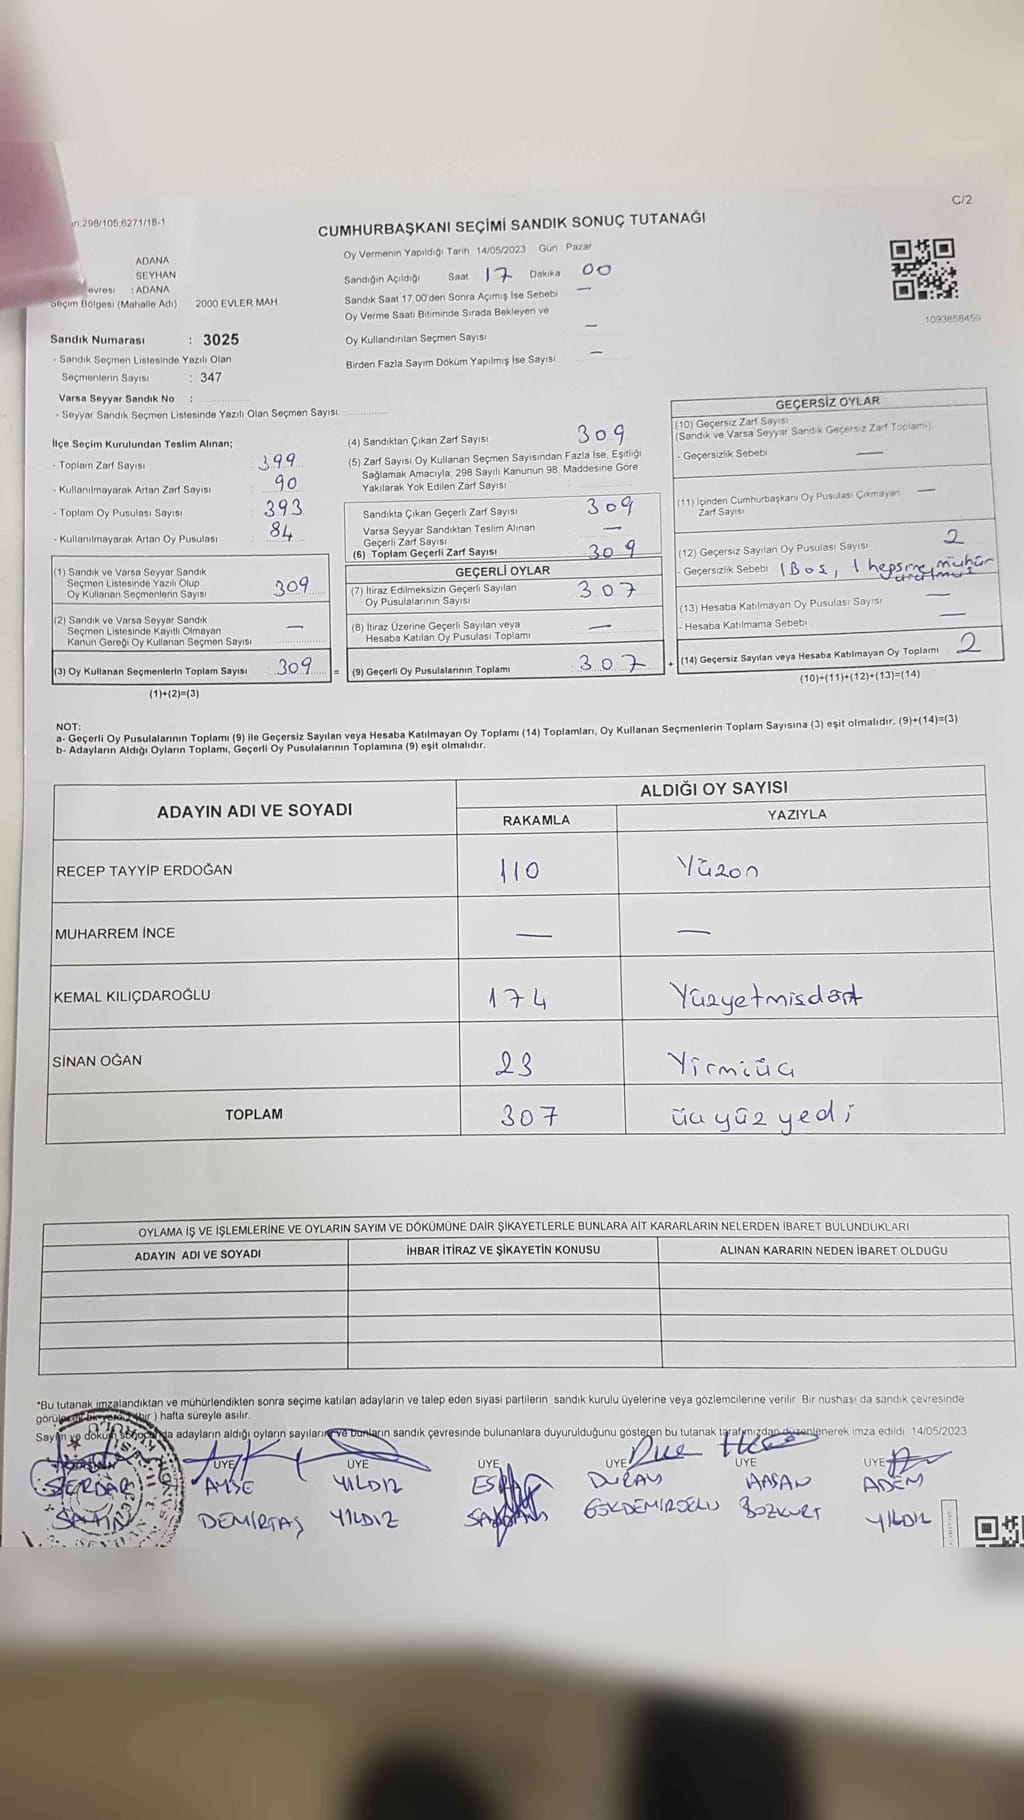 298/105,6271/18-1
C/2
CUMHURBAŞKANI SEÇİMİ SANDIK SONUÇ TUTANAĞI
ADANA
SEYHAN
evresi : ADANA
Seçim Bölgesi (Mahalle Adı) 2000 EVLER MAH.
Oy Vermenin Yapıldığı Tarih : 14/05/2023 Gün : Pazar
Sandığın Açıldığı Saat 17 Dakika 00
Sandık Saat 17.00'den Sonra Açılmış İse Sebebi —
Oy Verme Saati Bitiminde Sırada Bekleyen ve
Oy Kullandırılan Seçmen Sayısı —
Birden Fazla Sayım Döküm Yapılmış İse Sayısı —
1093858459
Sandık Numarası : 3025
- Sandık Seçmen Listesinde Yazılı Olan
Seçmenlerin Sayısı : 347
Varsa Seyyar Sandık No :
- Seyyar Sandık Seçmen Listesinde Yazılı Olan Seçmen Sayısı:
İlçe Seçim Kurulundan Teslim Alınan;
- Toplam Zarf Sayısı : 399
- Kullanılmayarak Artan Zarf Sayısı : 90
- Toplam Oy Pusulası Sayısı : 393
- Kullanılmayarak Artan Oy Pusulası : 84
(1) Sandık ve Varsa Seyyar Sandık
Seçmen Listesinde Yazılı Olup
Oy Kullanan Seçmenlerin Sayısı : 309
(2) Sandık ve Varsa Seyyar Sandık
Seçmen Listesinde Kayıtlı Olmayan
Kanun Gereği Oy Kullanan Seçmen Sayısı : —
(3) Oy Kullanan Seçmenlerin Toplam Sayısı : 309 =
(1)+(2)=(3)
(4) Sandıktan Çıkan Zarf Sayısı 309
(5) Zarf Sayısı Oy Kullanan Seçmen Sayısından Fazla İse, Eşitliği
Sağlamak Amacıyla; 298 Sayılı Kanunun 98. Maddesine Göre
Yakılarak Yok Edilen Zarf Sayısı :
Sandıkta Çıkan Geçerli Zarf Sayısı : 309
Varsa Seyyar Sandıktan Teslim Alınan
Geçerli Zarf Sayısı : —
(6) Toplam Geçerli Zarf Sayısı : 309
GEÇERLİ OYLAR
(7) İtiraz Edilmeksizin Geçerli Sayılan
Oy Pusulalarının Sayısı : 307
(8) İtiraz Üzerine Geçerli Sayılan veya
Hesaba Katılan Oy Pusulası Toplamı : —
(9) Geçerli Oy Pusulalarının Toplamı : 307 +
GEÇERSİZ OYLAR
(10) Geçersiz Zarf Sayısı
(Sandık ve Varsa Seyyar Sandık Geçersiz Zarf Toplamı)
- Geçersizlik Sebebi : —
(11) İçinden Cumhurbaşkanı Oy Pusulası Çıkmayan —
Zarf Sayısı
(12) Geçersiz Sayılan Oy Pusulası Sayısı 2
- Geçersizlik Sebebi 1 Boş, 1 hepsine mühür
(13) Hesaba Katılmayan Oy Pusulası Sayısı —
- Hesaba Katılmama Sebebi —
(14) Geçersiz Sayılan veya Hesaba Katılmayan Oy Toplamı 2
(10)+(11)+(12)+(13)=(14)
NOT:
a- Geçerli Oy Pusulalarının Toplamı (9) ile Geçersiz Sayılan veya Hesaba Katılmayan Oy Toplamı (14) Toplamları, Oy Kullanan Seçmenlerin Toplam Sayısına (3) eşit olmalıdır. (9)+(14)=(3)
b- Adayların Aldığı Oyların Toplamı, Geçerli Oy Pusulalarının Toplamına (9) eşit olmalıdır.
ADAYIN ADI VE SOYADI
ALDIĞI OY SAYISI
RAKAMLA YAZIYLA
RECEP TAYYİP ERDOĞAN 110 Yüzon
MUHARREM İNCE — —
KEMAL KILIÇDAROĞLU 174 Yüzyetmisdört
SİNAN OĞAN 23 Yirmiüç
TOPLAM 307 üçyüz yedi
OYLAMA İŞ VE İŞLEMLERİNE VE OYLARIN SAYIM VE DÖKÜMÜNE DAİR ŞİKAYETLERLE BUNLARA AİT KARARLARIN NELERDEN İBARET BULUNDUKLARI
ADAYIN ADI VE SOYADI İHBAR İTİRAZ VE ŞİKAYETİN KONUSU ALINAN KARARIN NEDEN İBARET OLDUĞU
*Bu tutanak imzalandıktan ve mühürlendikten sonra seçime katılan adayların ve talep eden siyasi partilerin sandık kurulu üyelerine veya gözlemcilerine verilir. Bir nüshası da sandık çevresinde
hafta süreyle asılır.
adayların aldığı oyların sayılarını ve bunların sandık çevresinde bulunanlara duyurulduğunu gösteren bu tutanak tarafımızdan düzenlenerek imza edildi. 14/05/2023
BAŞKAN ÜYE ÜYE ÜYE ÜYE ÜYE ÜYE
SERDAR AYŞE YILDIZ DURAN HASAN ADEM
DEMİRTAŞ YILDIZ GÖKDEMİROĞLU BOZKURT YILDIZ